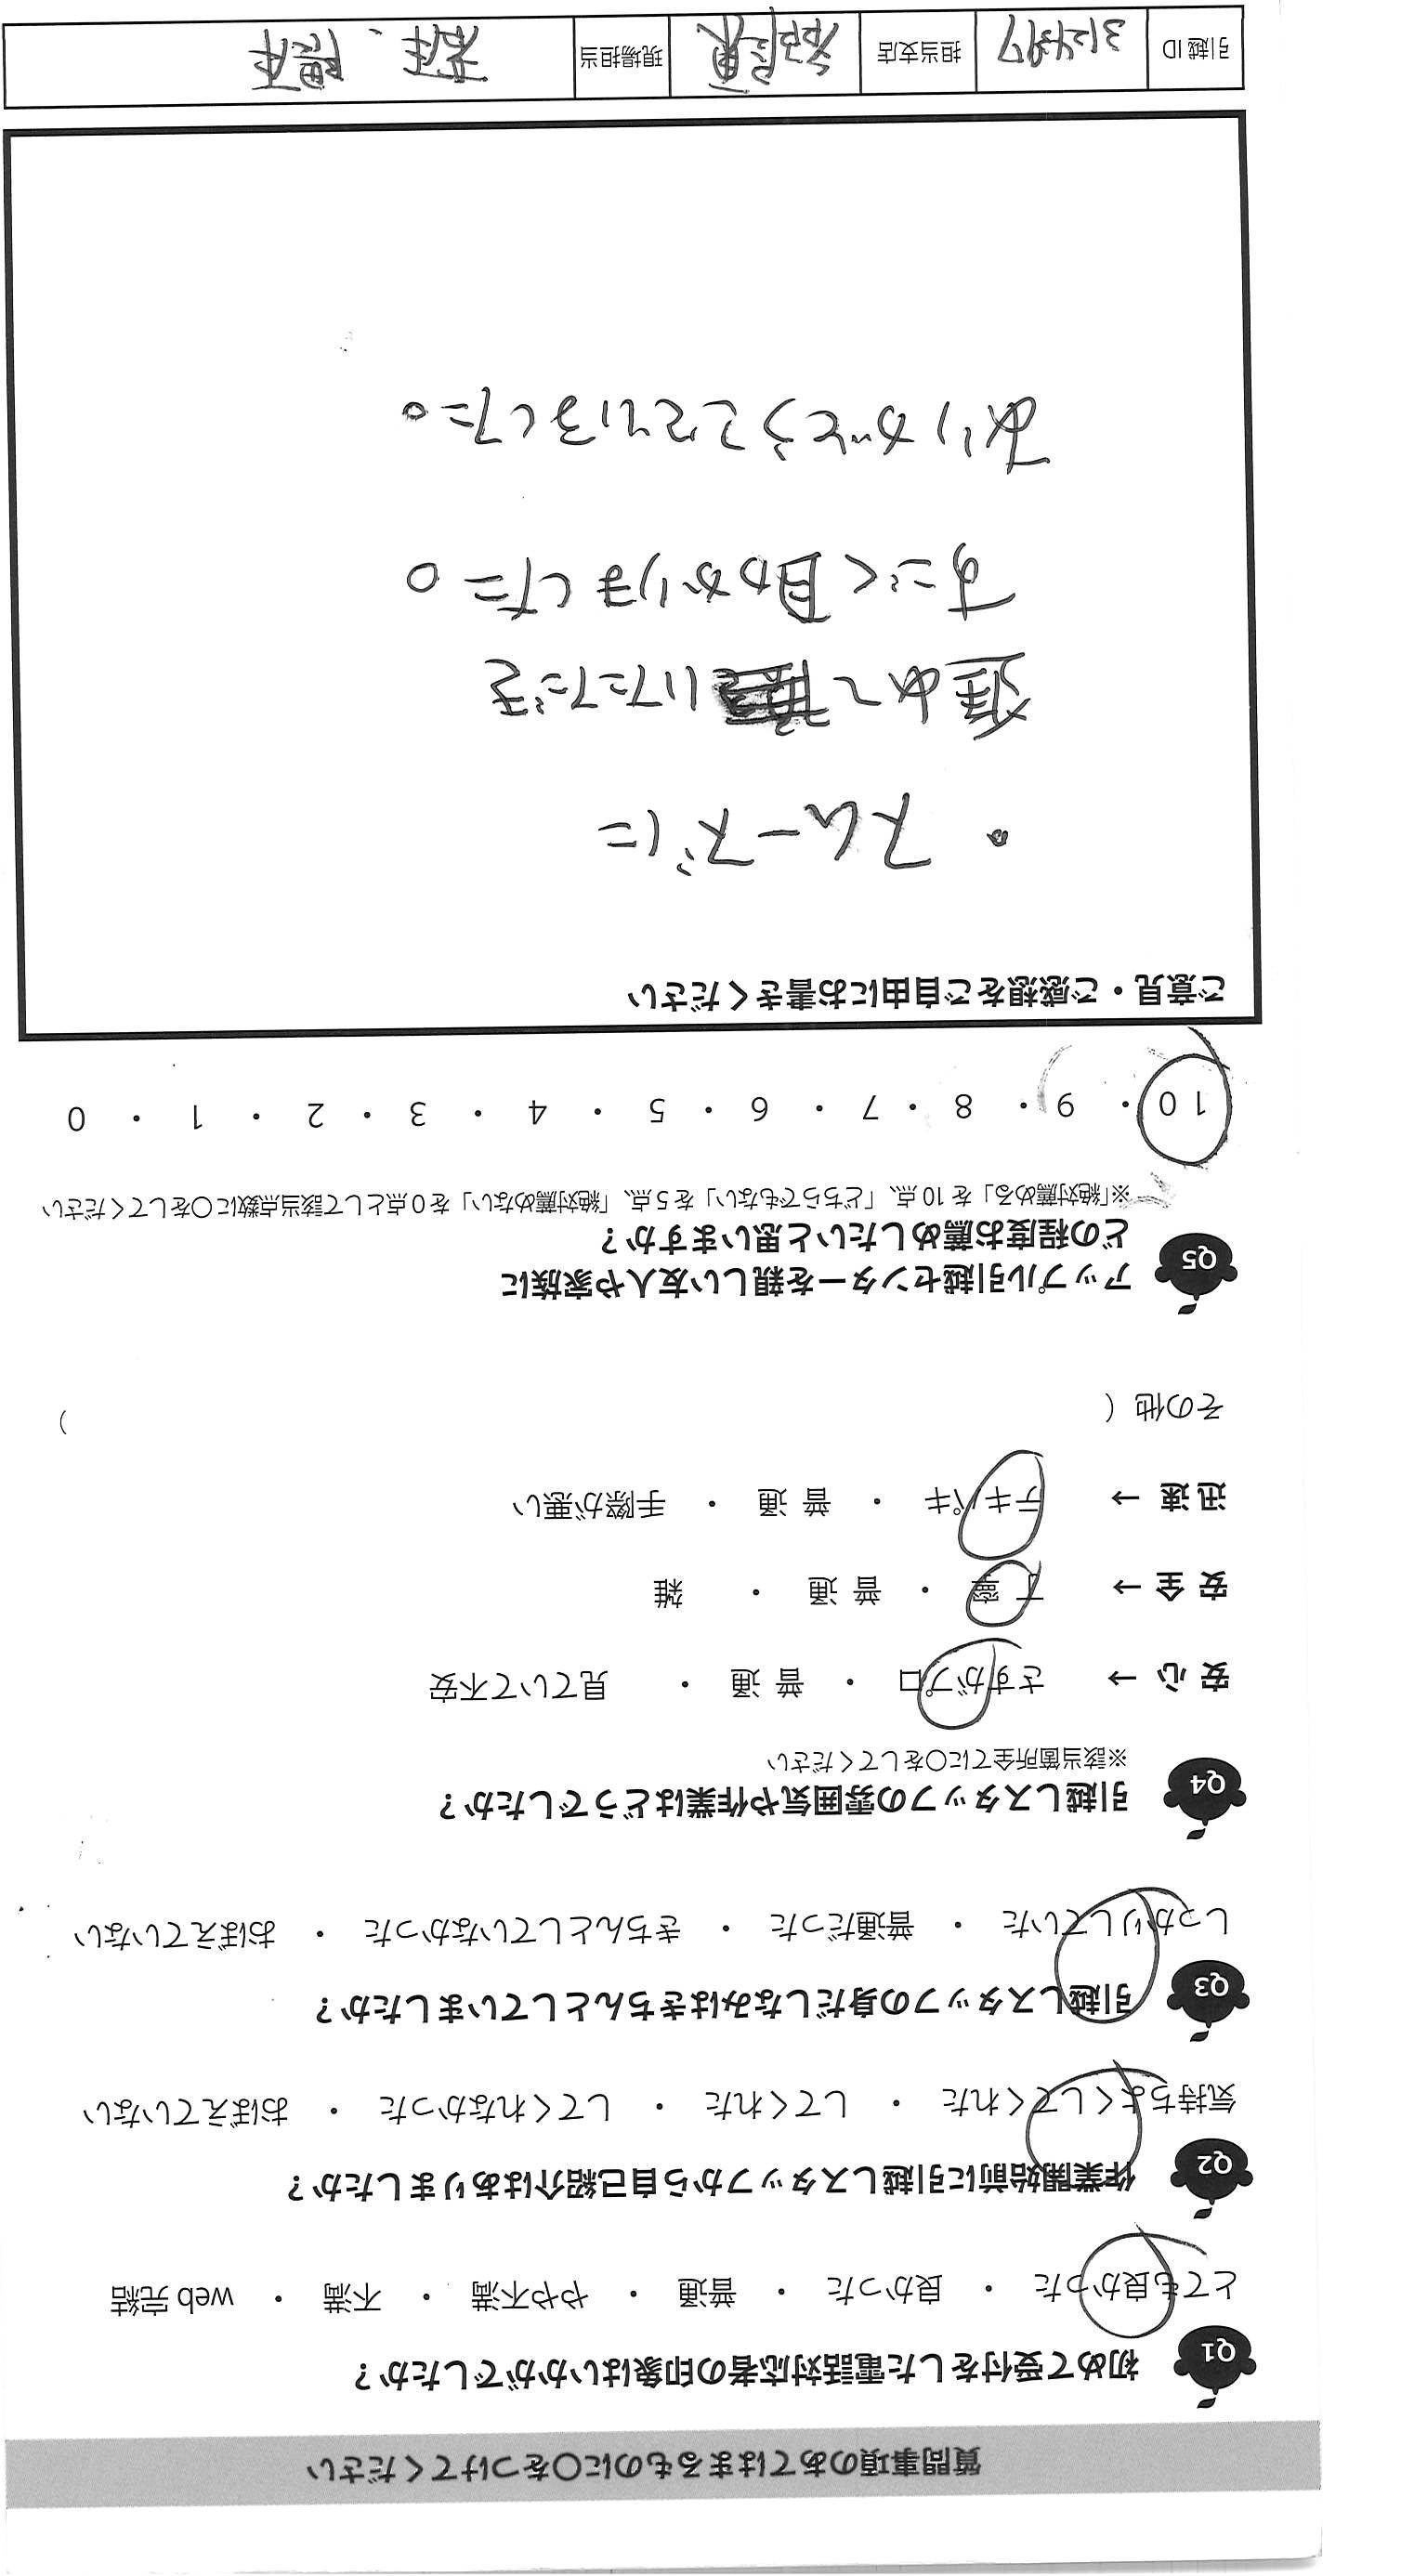 質問事項のあてはまるものに〇をつけてください
Q1 初めて受付をした電話対応者の印象はいかがでしたか？
とても良かった ・ 良かった ・ 普通 ・ やや不満 ・ 不満 ・ web 完結
Q2 作業開始前に引越しスタッフから自己紹介はありましたか？
気持ちよくしてくれた ・ してくれた ・ してくれなかった ・ おぼえていない
Q3 引越しスタッフの身だしなみはきちんとしていましたか？
しっかりしていた ・ 普通だった ・ きちんとしていなかった ・ おぼえていない
Q4 引越しスタッフの雰囲気や作業はどうでしたか？
※該当箇所全てに〇をしてください
安 心 → さすがプロ ・ 普 通 ・ 見ていて不安
安 全 → 丁 寧 ・ 普 通 ・ 雑
迅 速 → テキパキ ・ 普 通 ・ 手際が悪い
その他 （ ）
Q5 アップル引越センターを親しい友人や家族に
どの程度お薦めしたいと思いますか？
※「絶対薦める」を 10 点、「どちらでもない」を 5 点、「絶対薦めない」を 0 点として該当点数に〇をしてください
10 ・ 9 ・ 8 ・ 7 ・ 6 ・ 5 ・ 4 ・ 3 ・ 2 ・ 1 ・ 0
ご意見・ご感想をご自由にお書きください
・スムーズに
進めていただき
すごく助かりました。
ありがとうございました。
引越 ID 担当支店 現場担当